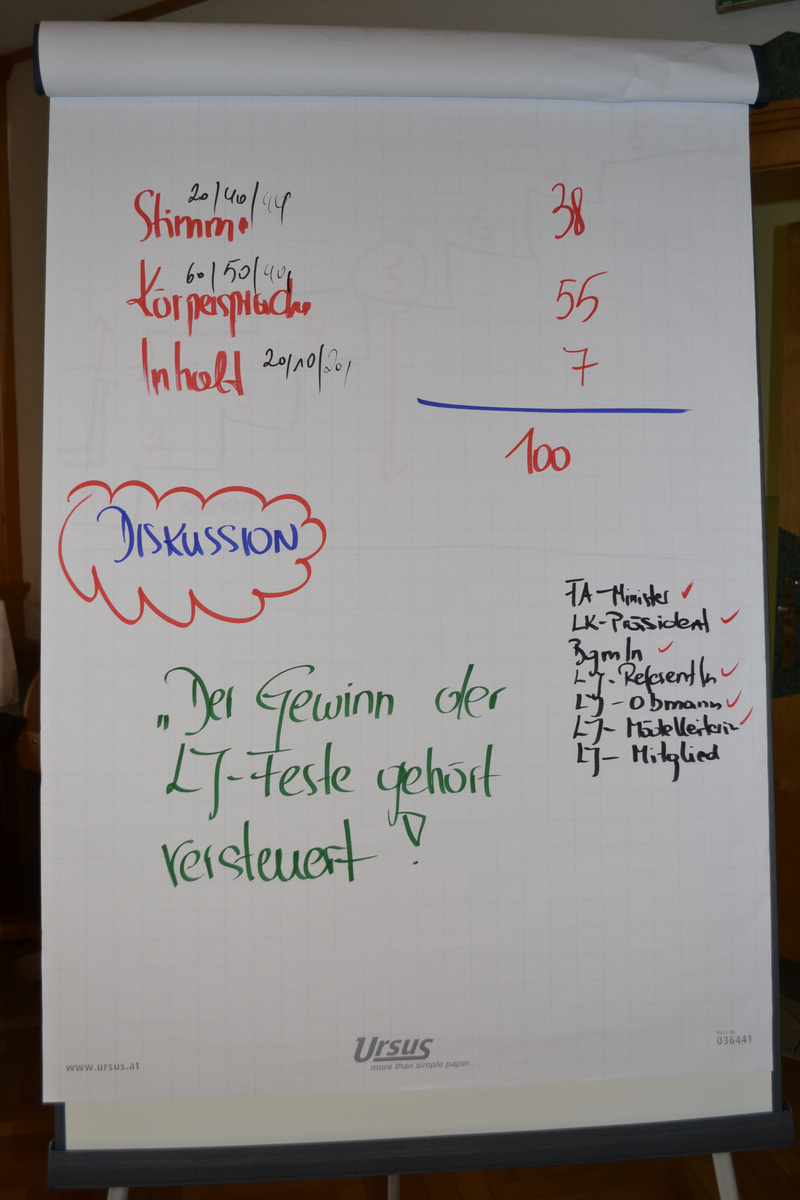 20/40/44
Stimme 38
60/50/40,
Körpersprache 55
Inhalt 20/10/20, 7
100
DISKUSSION
FA-Minister ✓
LK-Präsident ✓
BgmIn ✓
LJ-ReferentIn ✓
LJ-Obmann ✓
LJ-Mädelleiterin ✓
LJ-Mitglied
„Der Gewinn der
LJ-Feste gehört
versteuert!
Ursus
more than simple paper
www.ursus.at
Best-Nr.
036441